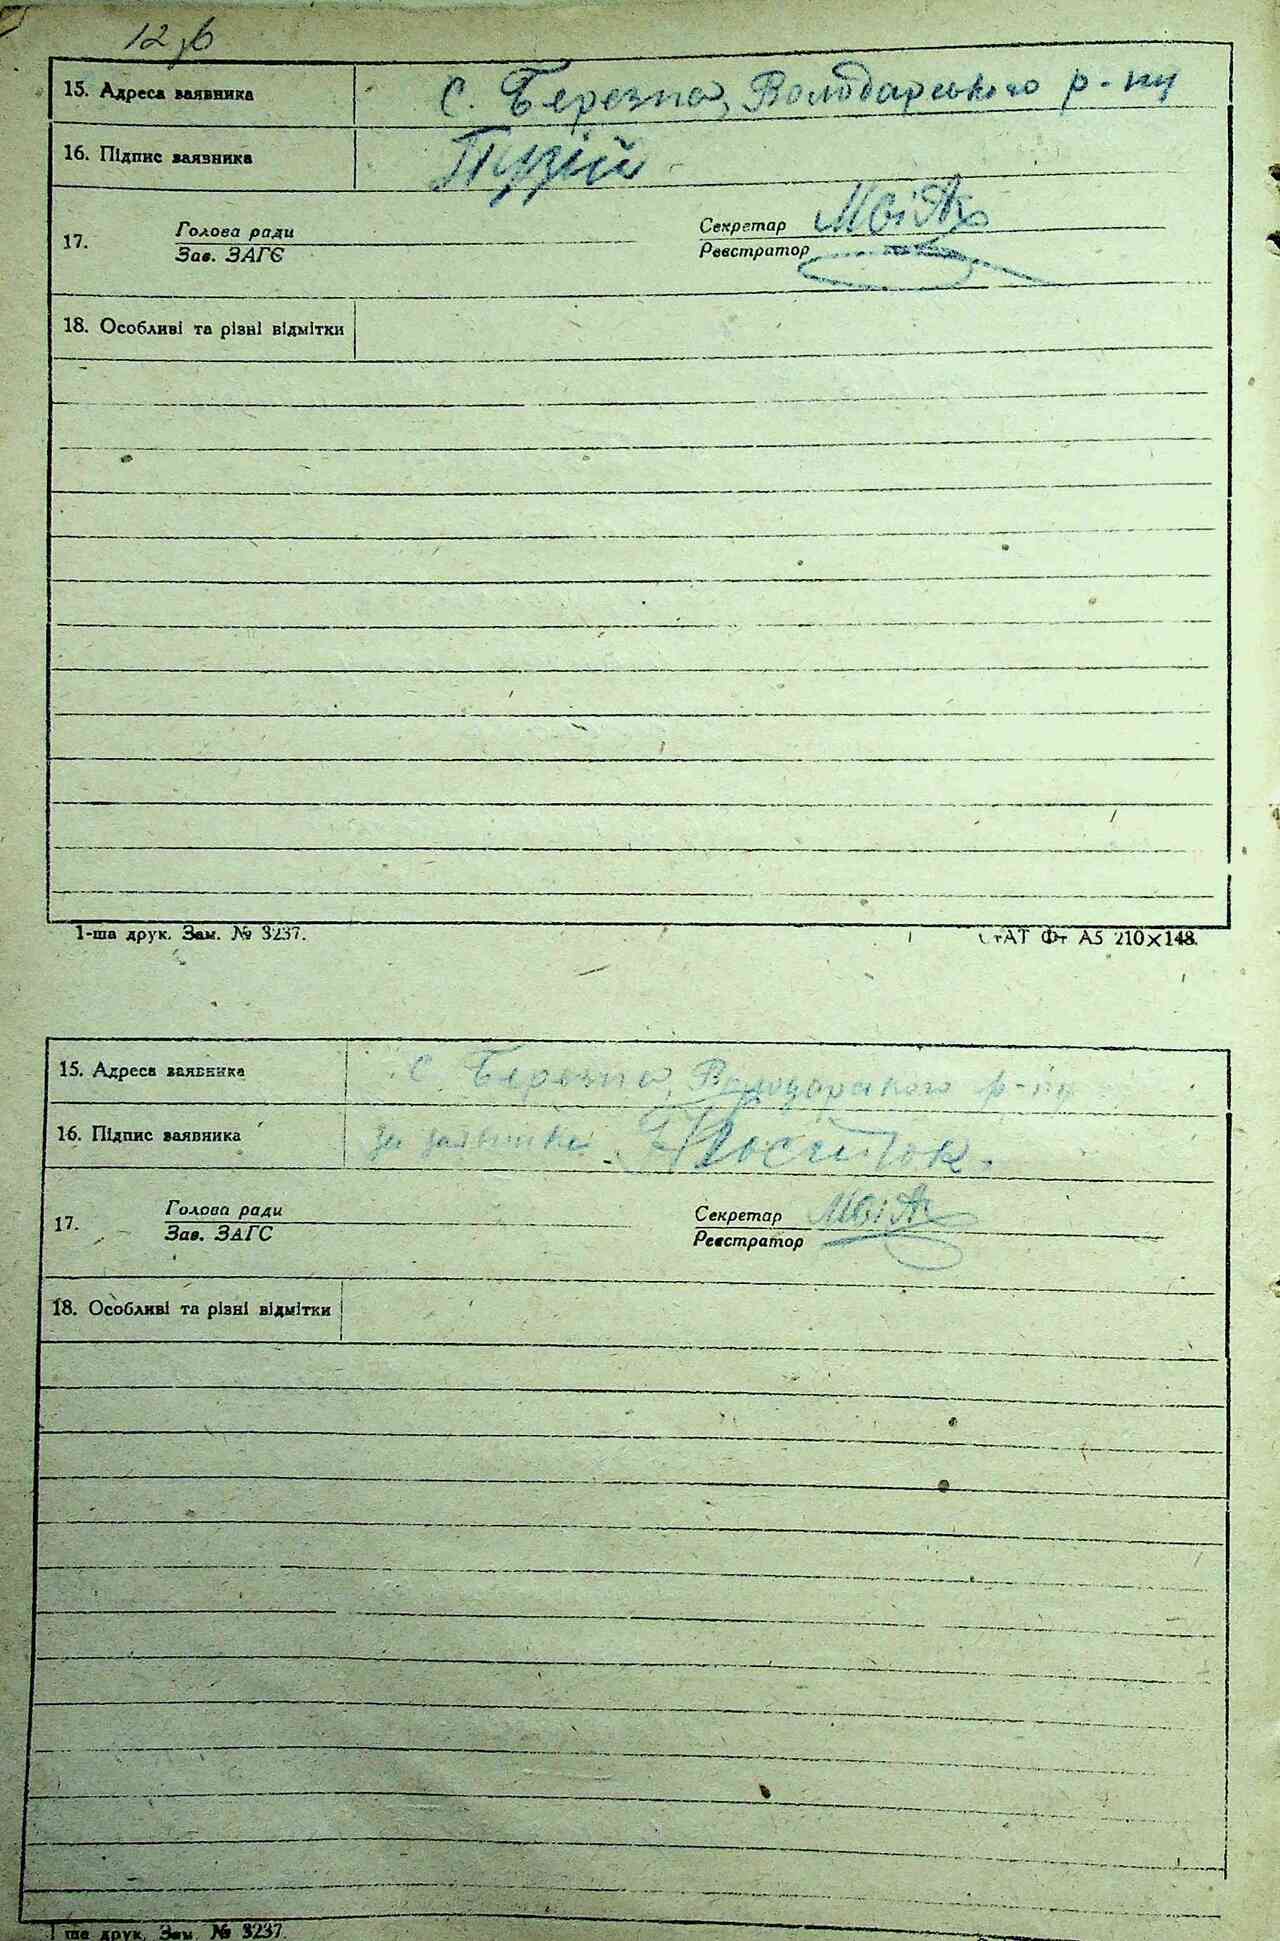 12 зв
15. Адреса заявника с. Березна, Володарського р-ну
16. Підпис заявника Пузій
17. Голова ради Секретар
Зав. ЗАГС Реєстратор
18. Особливі та різні відмітки
1-ша друк. Зам. № 3237. СтАТ Фт А5 210×148.
15. Адреса заявника с. Березна, Володарського р-ну
16. Підпис заявника За заявника
17. Голова ради Секретар
Зав. ЗАГС Реєстратор
18. Особливі та різні відмітки
ша друк. Зам. № 3237.